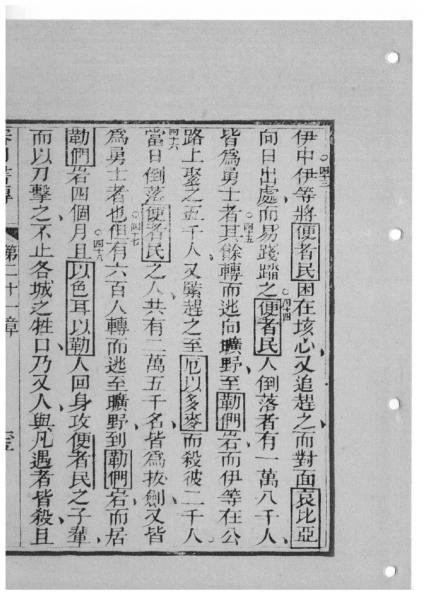 ○四十三
伊中伊等將便者民困在垓心又追趕之而對面哀比亞
向日出處而易踐踏之○四十四便者民人倒落者有一萬八千人
皆爲勇士者○四十五其餘轉而逃向曠野至勒們岩而伊等在公
路上聚之五千人又緊趕之至厄以多麥而殺彼二千人
四十六當日倒落便者民之人共有二萬五千名皆爲抜劍又皆
爲勇士者也○四十七但有六百人轉而逃至曠野到勒們岩而居
勒們岩四個月○四十八且以色耳以勒人回身攻便者民之子輩
而以刀擊之不止各城之牲口乃又人與凡遇者皆殺且
第二十一章